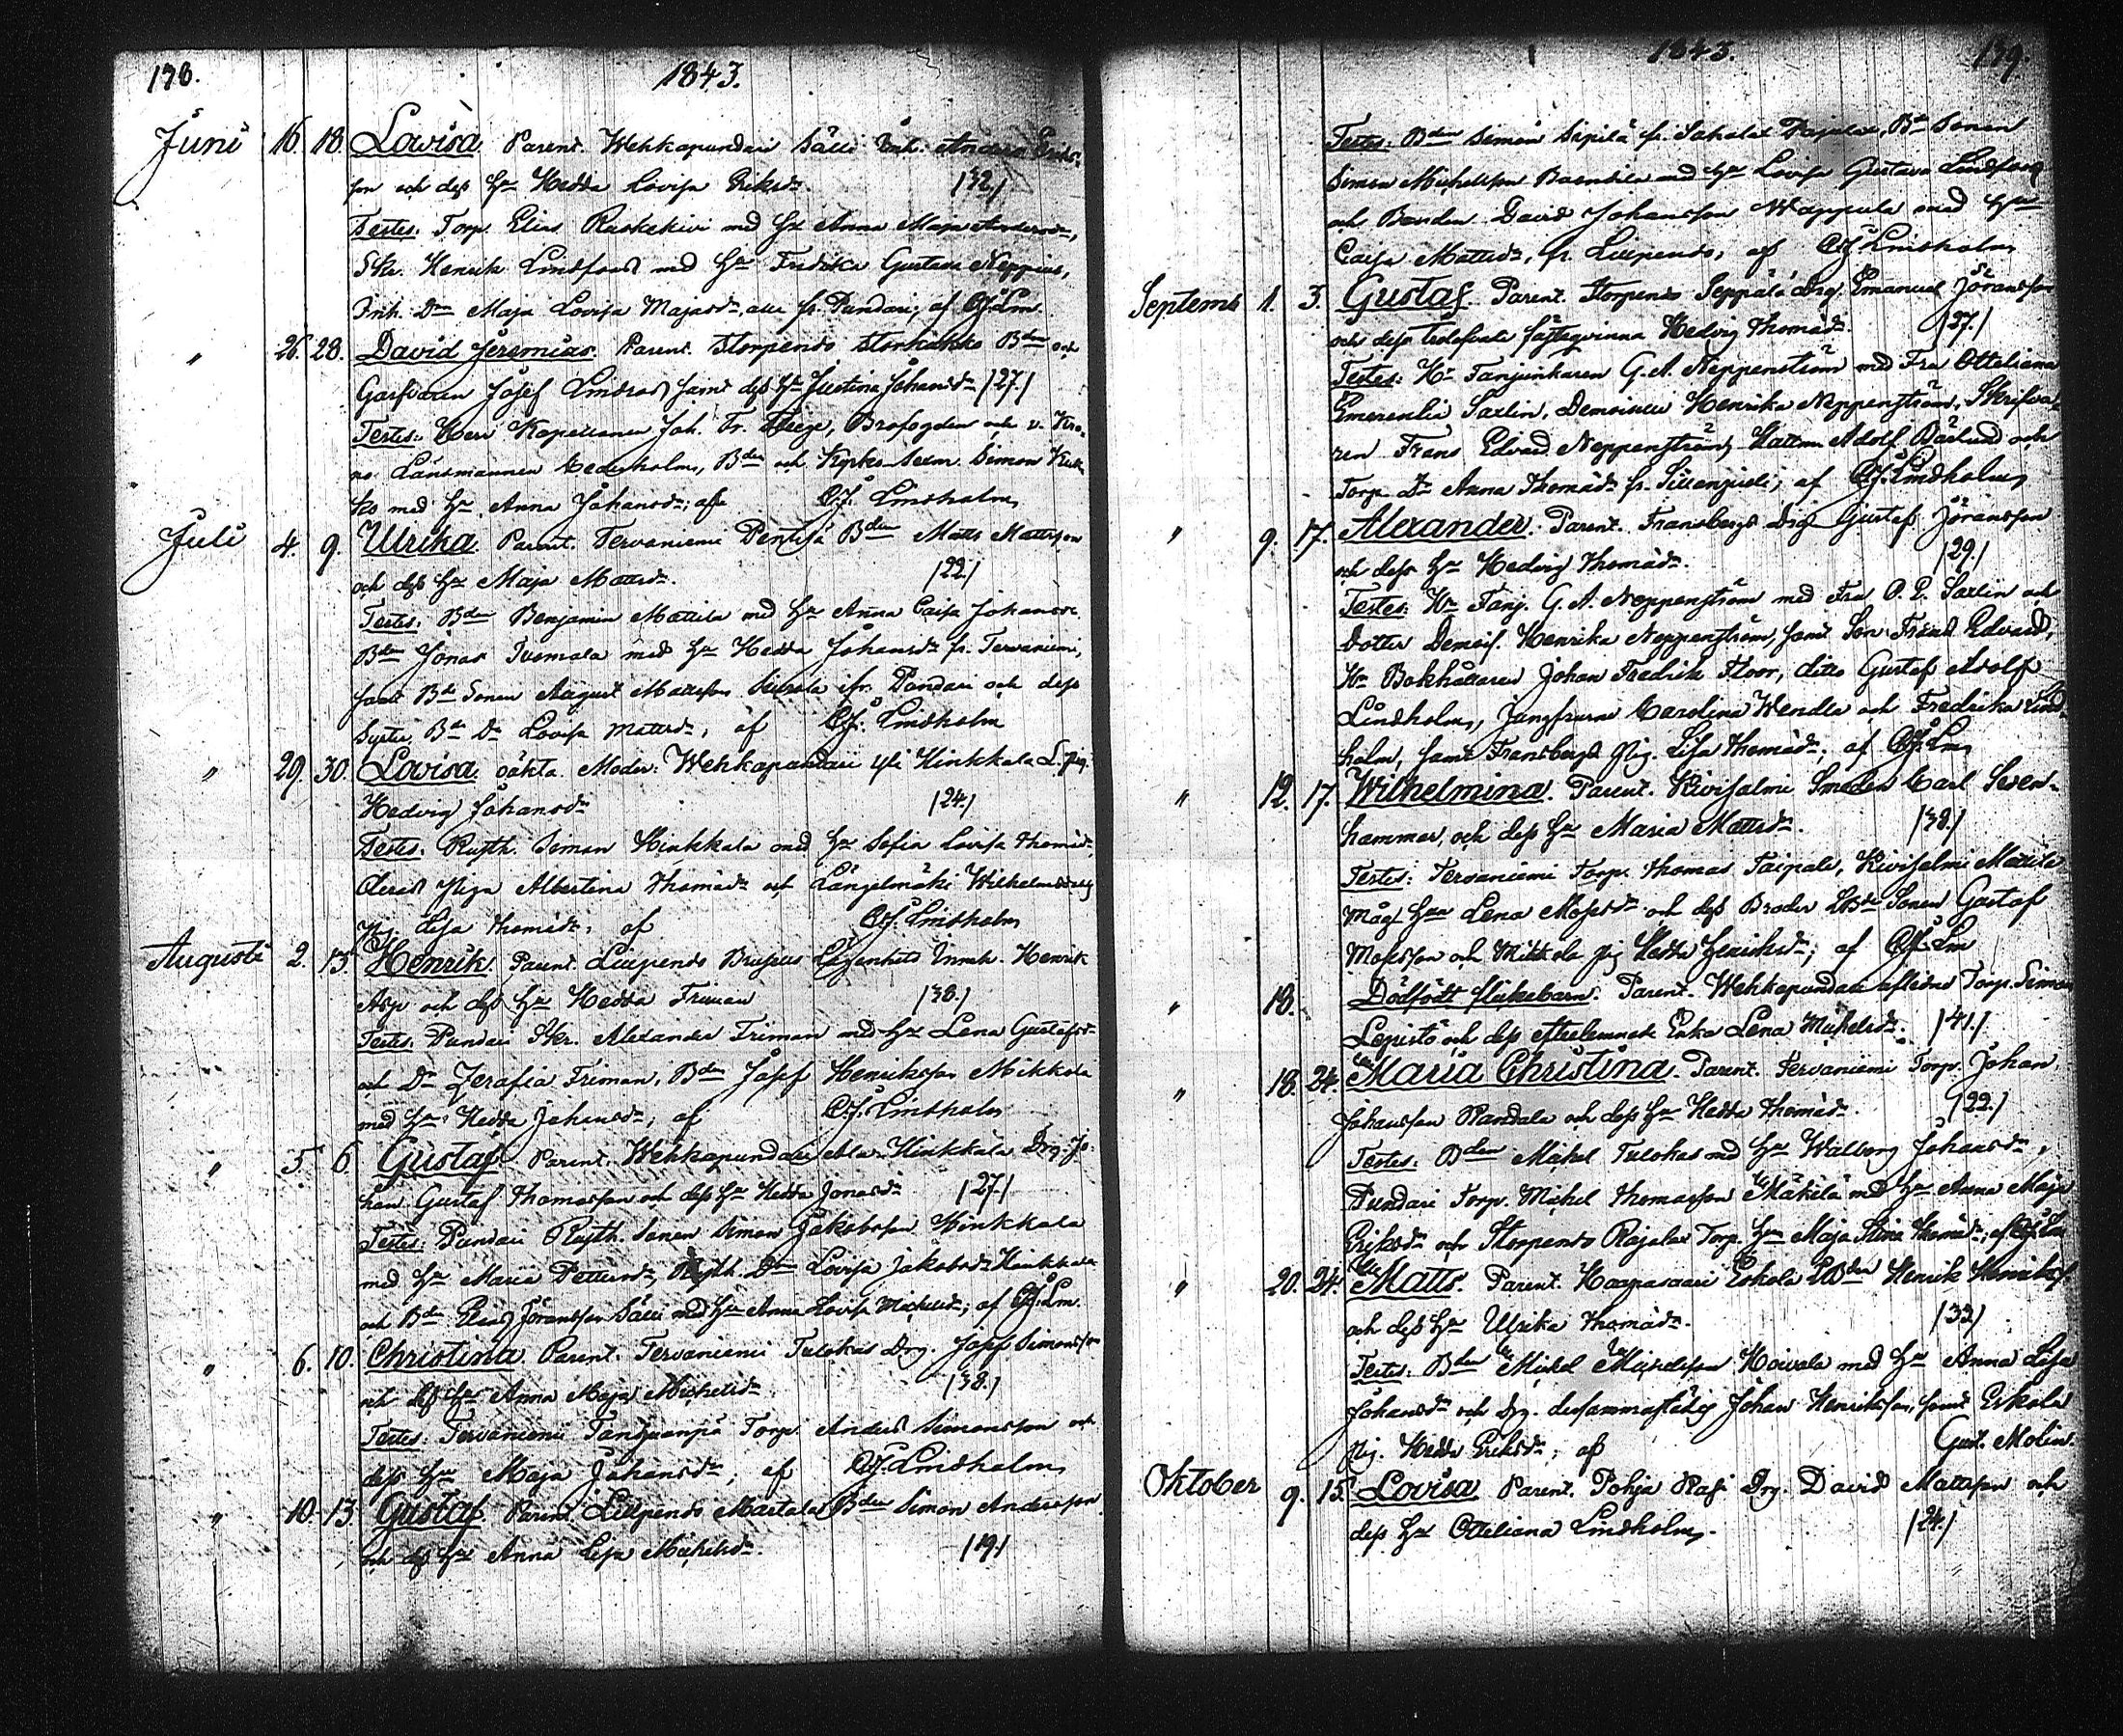 178. 1843.
Juni 16. 18. Lovisa. Parent. Wehkapundari Sälli Inh. Anders Eriks-
son och dess Hu Hedda Lovisa Eriksdr. /32./
Testes. Torp. Elias Ruskekivi med Hu Anna Maja Andersdr,
Skr. Henrik Lindfors med Hu Fredrika Gustava Neppius,
Inh. Dr Maja Lovisa Majasdr, alle fr. Pundari, af C.J. Lm.
" 26. 28. David Jeremias. Parent. Storpendo Storkakko Bden och
Garfvaren Josef Lindros samt dess Hu Justina Johansdr /27./
Testes: Herr Kapellanen Joh. Fr. Thiege, Brofogden och v. Kro-
no Länsmannen Cederholm, Bden och Kyrko Sexm. Simon
med Hu Anna Johansdr; af C.J. Lindholm
Juli 4. 9. Ulrika. Parent. Tervaniemi Pentilä Bden Matts Mattsson
och dess Hu Maja Mattsdr. /22/
Testes: Bden Benjamin Mattila med Hu Anna Caisa Johansdr
Bden Jonas Tuomala med Hu Hedda Johansdr fr. Tervaniemi,
samt Bde Sonen August Mattsson ifr. Pundari och dess
Syster Bde Dr Lovisa Mattsdr, af C.J. Lindholm
" 29. 30. Lovisa oäkta. Moder: Wehkapundari Yli Hinkkala L. pig.
Hedvig Johansdr /24./
Testes. Rusth. Simon Hinkkala med Hu Sofia Lovisa Thomadr,
Deras Piga Albertina Thomadr och Längelmäki Wilhelmsberg
Pig. Lisa Thomadr, af C.J. Lindholm
Augusti 2. 13. Henrik. Parent. Liupendo Lägenhets Inneh. Henrik
Asp och dess Hu Hedda Friman /38./
Testes. Pundari Skr. Alexander Friman med Hu Lena Gustafsdr
och Dr Zerafia Friman, Bden Josef Henriksson Mikkola
med Hu Hedda Johansdr; af C.J. Lindholm
" 5. 6. Gustaf. Parent. Wehkapundari Ala Hinkkala Drg. Jo-
han Gustaf Thomasson och dess Hu Hedda Jonasdr /27./
Testes: Pundari Rusth. Sonen Simon Jakobsson Hinkkala
med Hu Maria Pettersdr, Rusth. Dr Lovisa Jakobsdr Hinkkala
och Bde Elias Jöransson Sälli med Hu Anna Lovisa Michelsdr; af C.J. Lm.
" 6. 10. Christina. Parent. Tervaniemi Tulokas Drg. Josef Simonsson
och dess Hu Anna Maja Michelsdr /38./
Testes: Tervaniemi Torp. Anders Simonsson och
dess Hu Maja Johansdr, af C.J. Lindholm
" 10. 13. Gustaf. Parent. Liupendo Martala Bden Simon Andersson
och dess Hu Anna Lisa Michelsdr. /19/
1843. 179.
Testes: Bden Simon Sipilä fr. Sahalax, Bde Sonen
Simon Michelsson med Hu Lovisa Gustava Lindfors
och Bonden David Johansson Wappula med Hu
Caisa Mattsdr, fr. Liupendo, af C.J. Lindholm
Septemb 1. 3. Gustaf. Parent. Storpendo Seppälä Drg. Emanuel Jöransson
och dess trolofvade fästeqvinna Hedvig Thomadr. /27./
Testes: Hr Fanjunkaren G.A. Neppenström med Fru Otteliana
Emerentia Saxlin, Demoiselle Henrika Neppenström, Skrifva-
ren Frans Edvard Neppenström, Hattm. Adolf Barlund och
Torp. Dr Anna Thomadr fr. Sillenpuoli; af C.J. Lindholm
" 9. 17. Alexander. Parent. Fransbergs Drg Gustaf Jöransson
och dess Hu Hedvig Thomadr. /29./
Testes: Hr Fanj. G.A. Neppenström med Fru O.E. Saxlin och
Dotter Demois. Henrika Neppenström, samt Son Frans Edvard,
Hr Bokhållaren Johan Fredrik Floor, ditto Gustaf Adolf
Lindholm, Jungfrurna Carolina Wendla och Fredrika Lind-
holm, samt Fransbergs Pig. Lisa Thomadr; af C.J. Lm
" 12. 17. Wilhelmina. Parent. Kivisalmi Smeden Carl Seven-
hammar, och dess Hu Maria Mattsdr. /38./
Testes: Tervaniemi Torp. Thomas Taipale, Kivisalmi Mattila
Måg Hu Lena Mosesdr och dess Broder LBde Sonen Gustaf
Mosesson och Mikkola Pig Hedda Henriksdr; af C.J. Lm
" 18. Dödfödt flickebarn. Parent. Wehkapundari aflidne Torp. Simon
Lepistö och dess efterlemnade Enka Lena Michelsdr. /41./
" 18. 24. Maria Christina. Parent. Tervaniemi Torp. Johan
Johansson Randala och dess Hu Hedda Thomadr. /22./
Testes: Bden Mickel Tulokas med Hu Walborg Johansdr,
Pundari Torp. Michel Thomasson Mäkelä med Hu Anna Maja
Eriksdr och Storpendo Rajalax Torp. Hu Maja Stina Thomadr; af C.J. Lm
" 20. 24. Matts. Parent. Haapasaari Eskola LBden Henrik Henrikss.
och dess Hu Ulrika Thomadr. /33/
Testes: Bden Mickel Mickelsson Hoivala med Hu Anna Lisa
Johansdr och Drg. dersammastädes Johan Henriksson, samt Eskola
Pig. Hedda Eriksdr; af Gust. Molin.
Oktober 9. 15. Lovisa. Parent. Pohja Rasi Drg. David Mattsson och
dess Hu Otteliana Lindholm. /24./